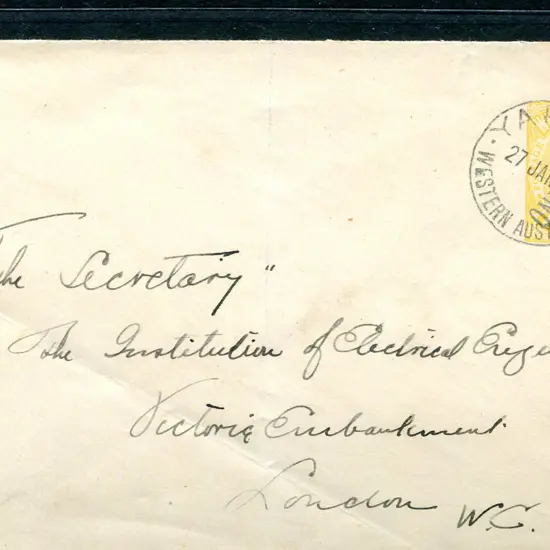 YA
27 JA
WESTERN AUST
The Secretary"
The Institution of Electrical Engi
Victoria Embankment
London W.C.